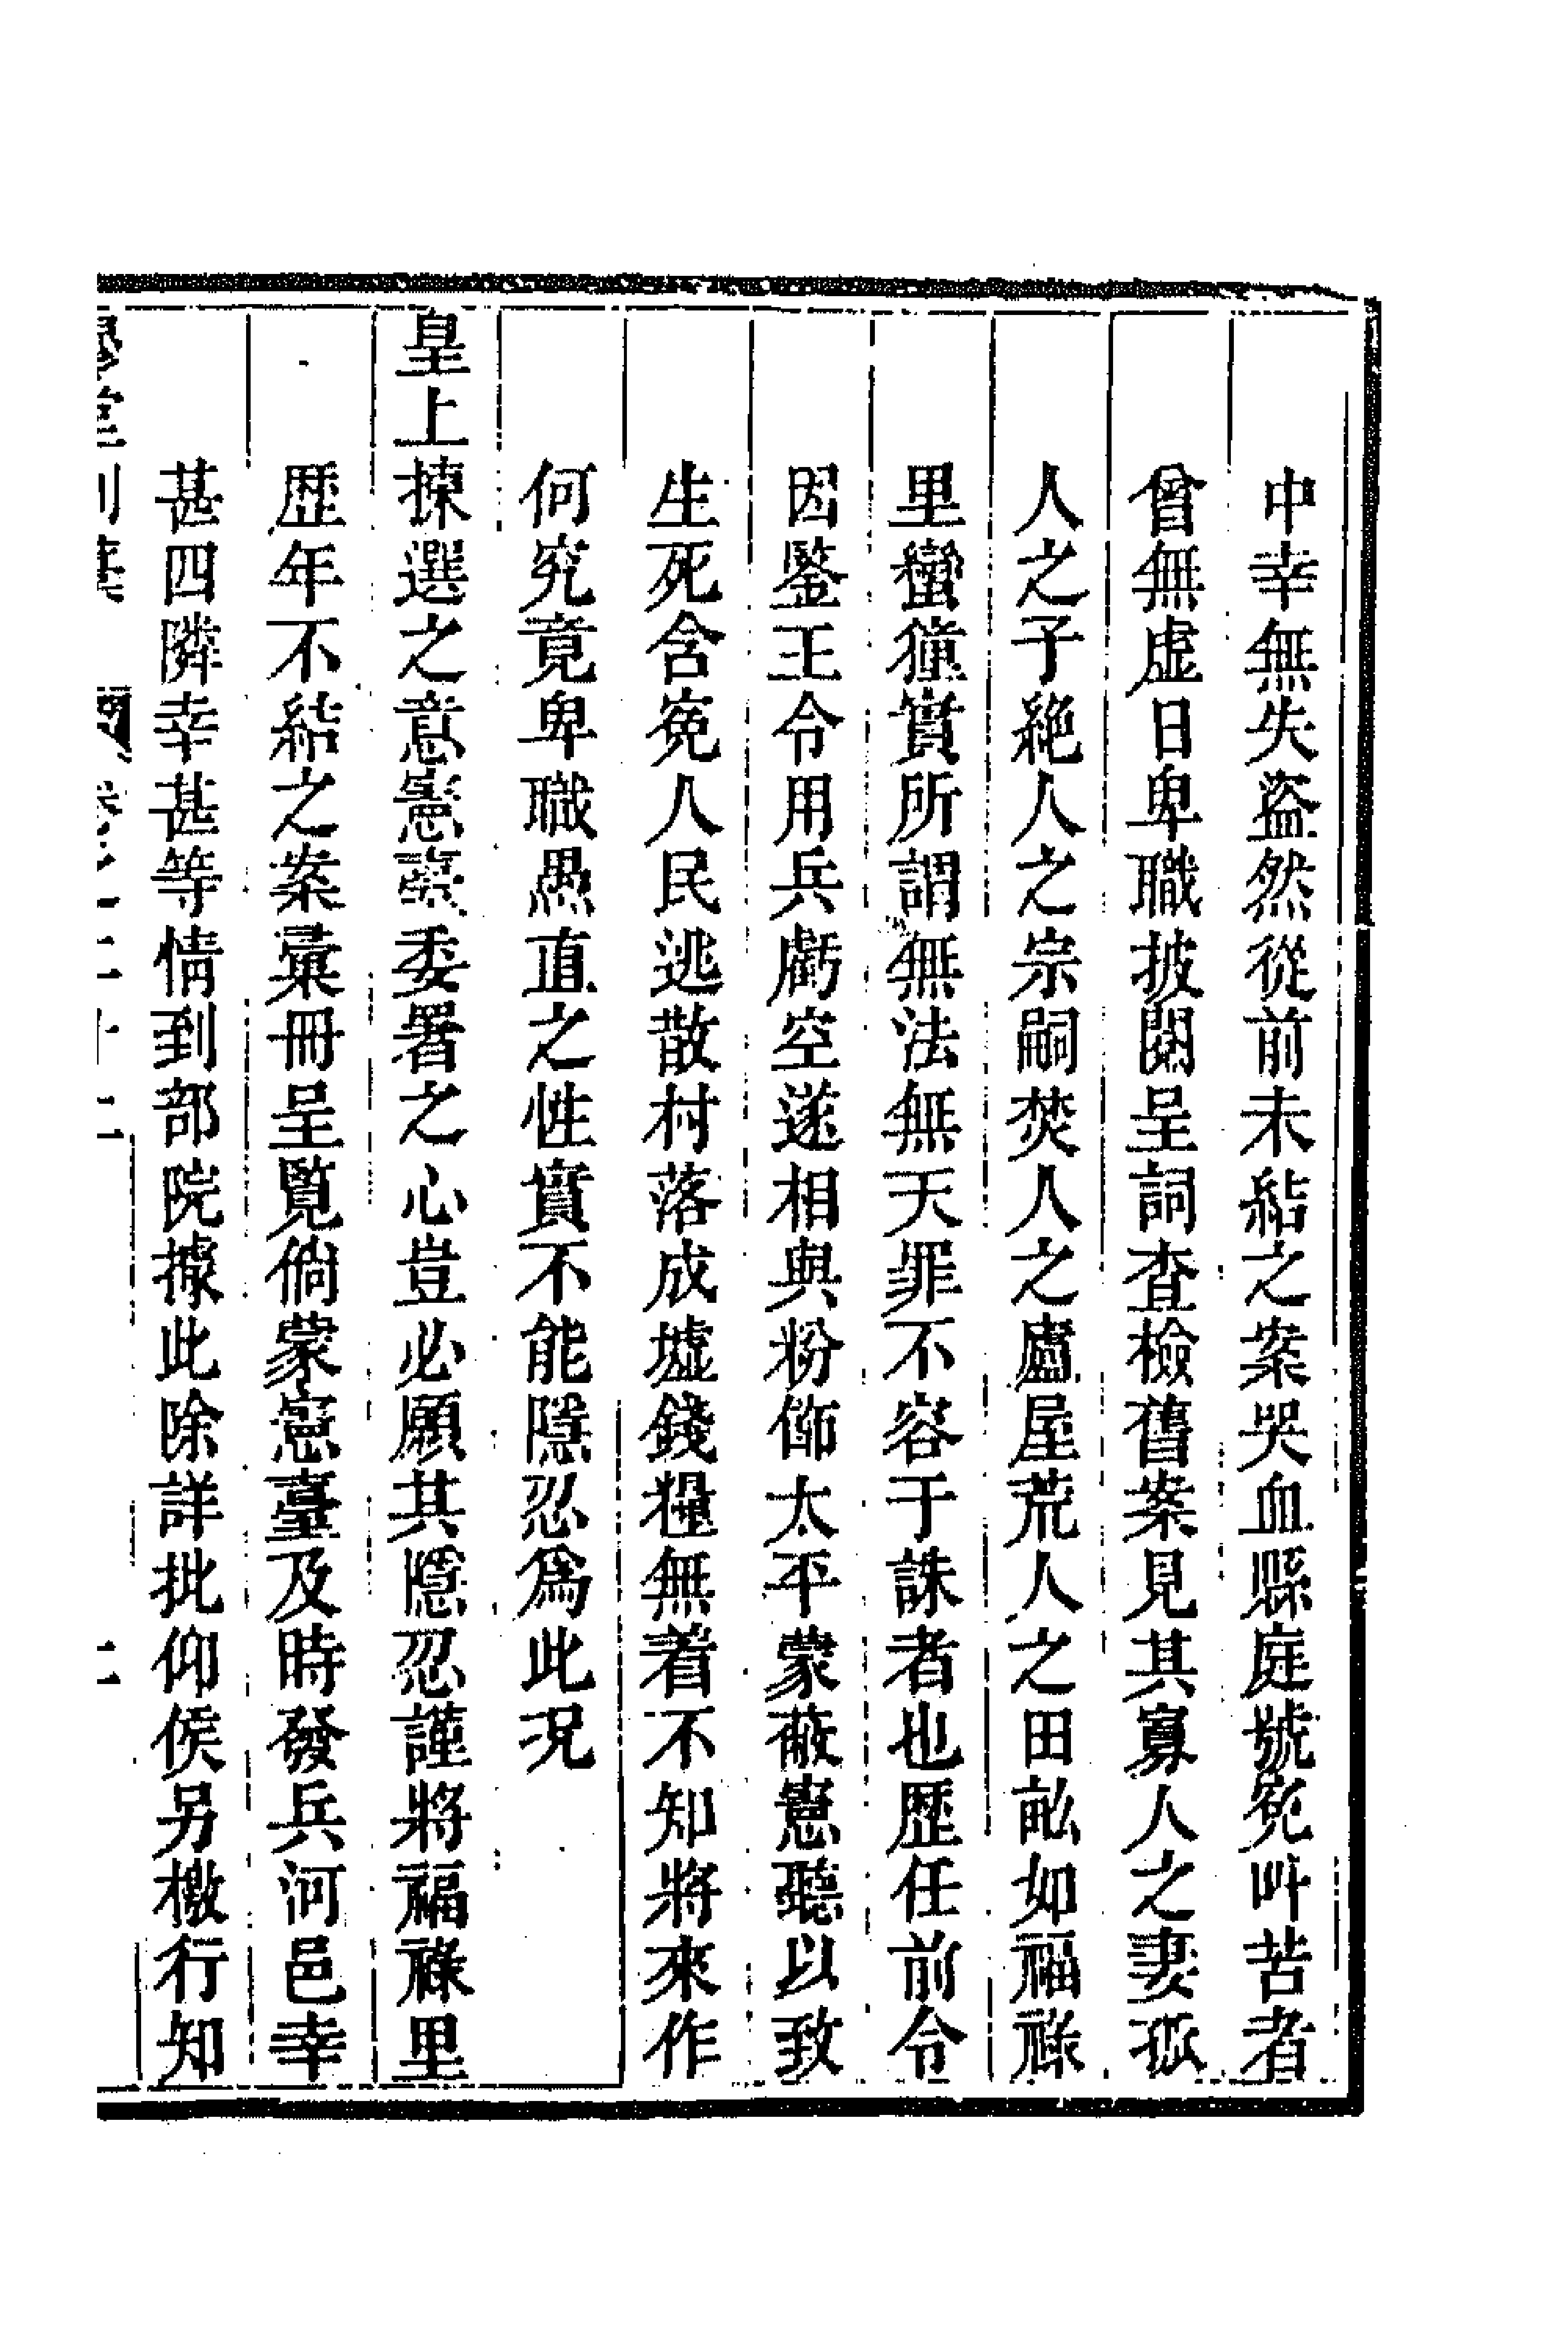 中幸無失盜然從前未結之案哭血縣庭號寃叫苦者
曾無虛日卑職披閱呈詞査檢舊案見其寡人之妻孤
人之子絶人之宗嗣焚人之廬屋荒人之田畆如福祿
里蠻獞實所謂無法無天罪不容于誅者也歷任前令
因鑒王令用兵虧空遂相與粉飾太平蒙蔽憲聽以致
生死含寃人民逃散村落成墟錢糧無着不知將來作
何究竟卑職愚直之性實不能隱忍爲此況
皇上揀選之意憲臺委署之心豈必願其隱忍謹將福祿里
歷年不結之案彙冊呈覧倘蒙憲臺及時發兵河邑幸
甚四隣幸甚等情到部院據此除詳批仰候另檄行知